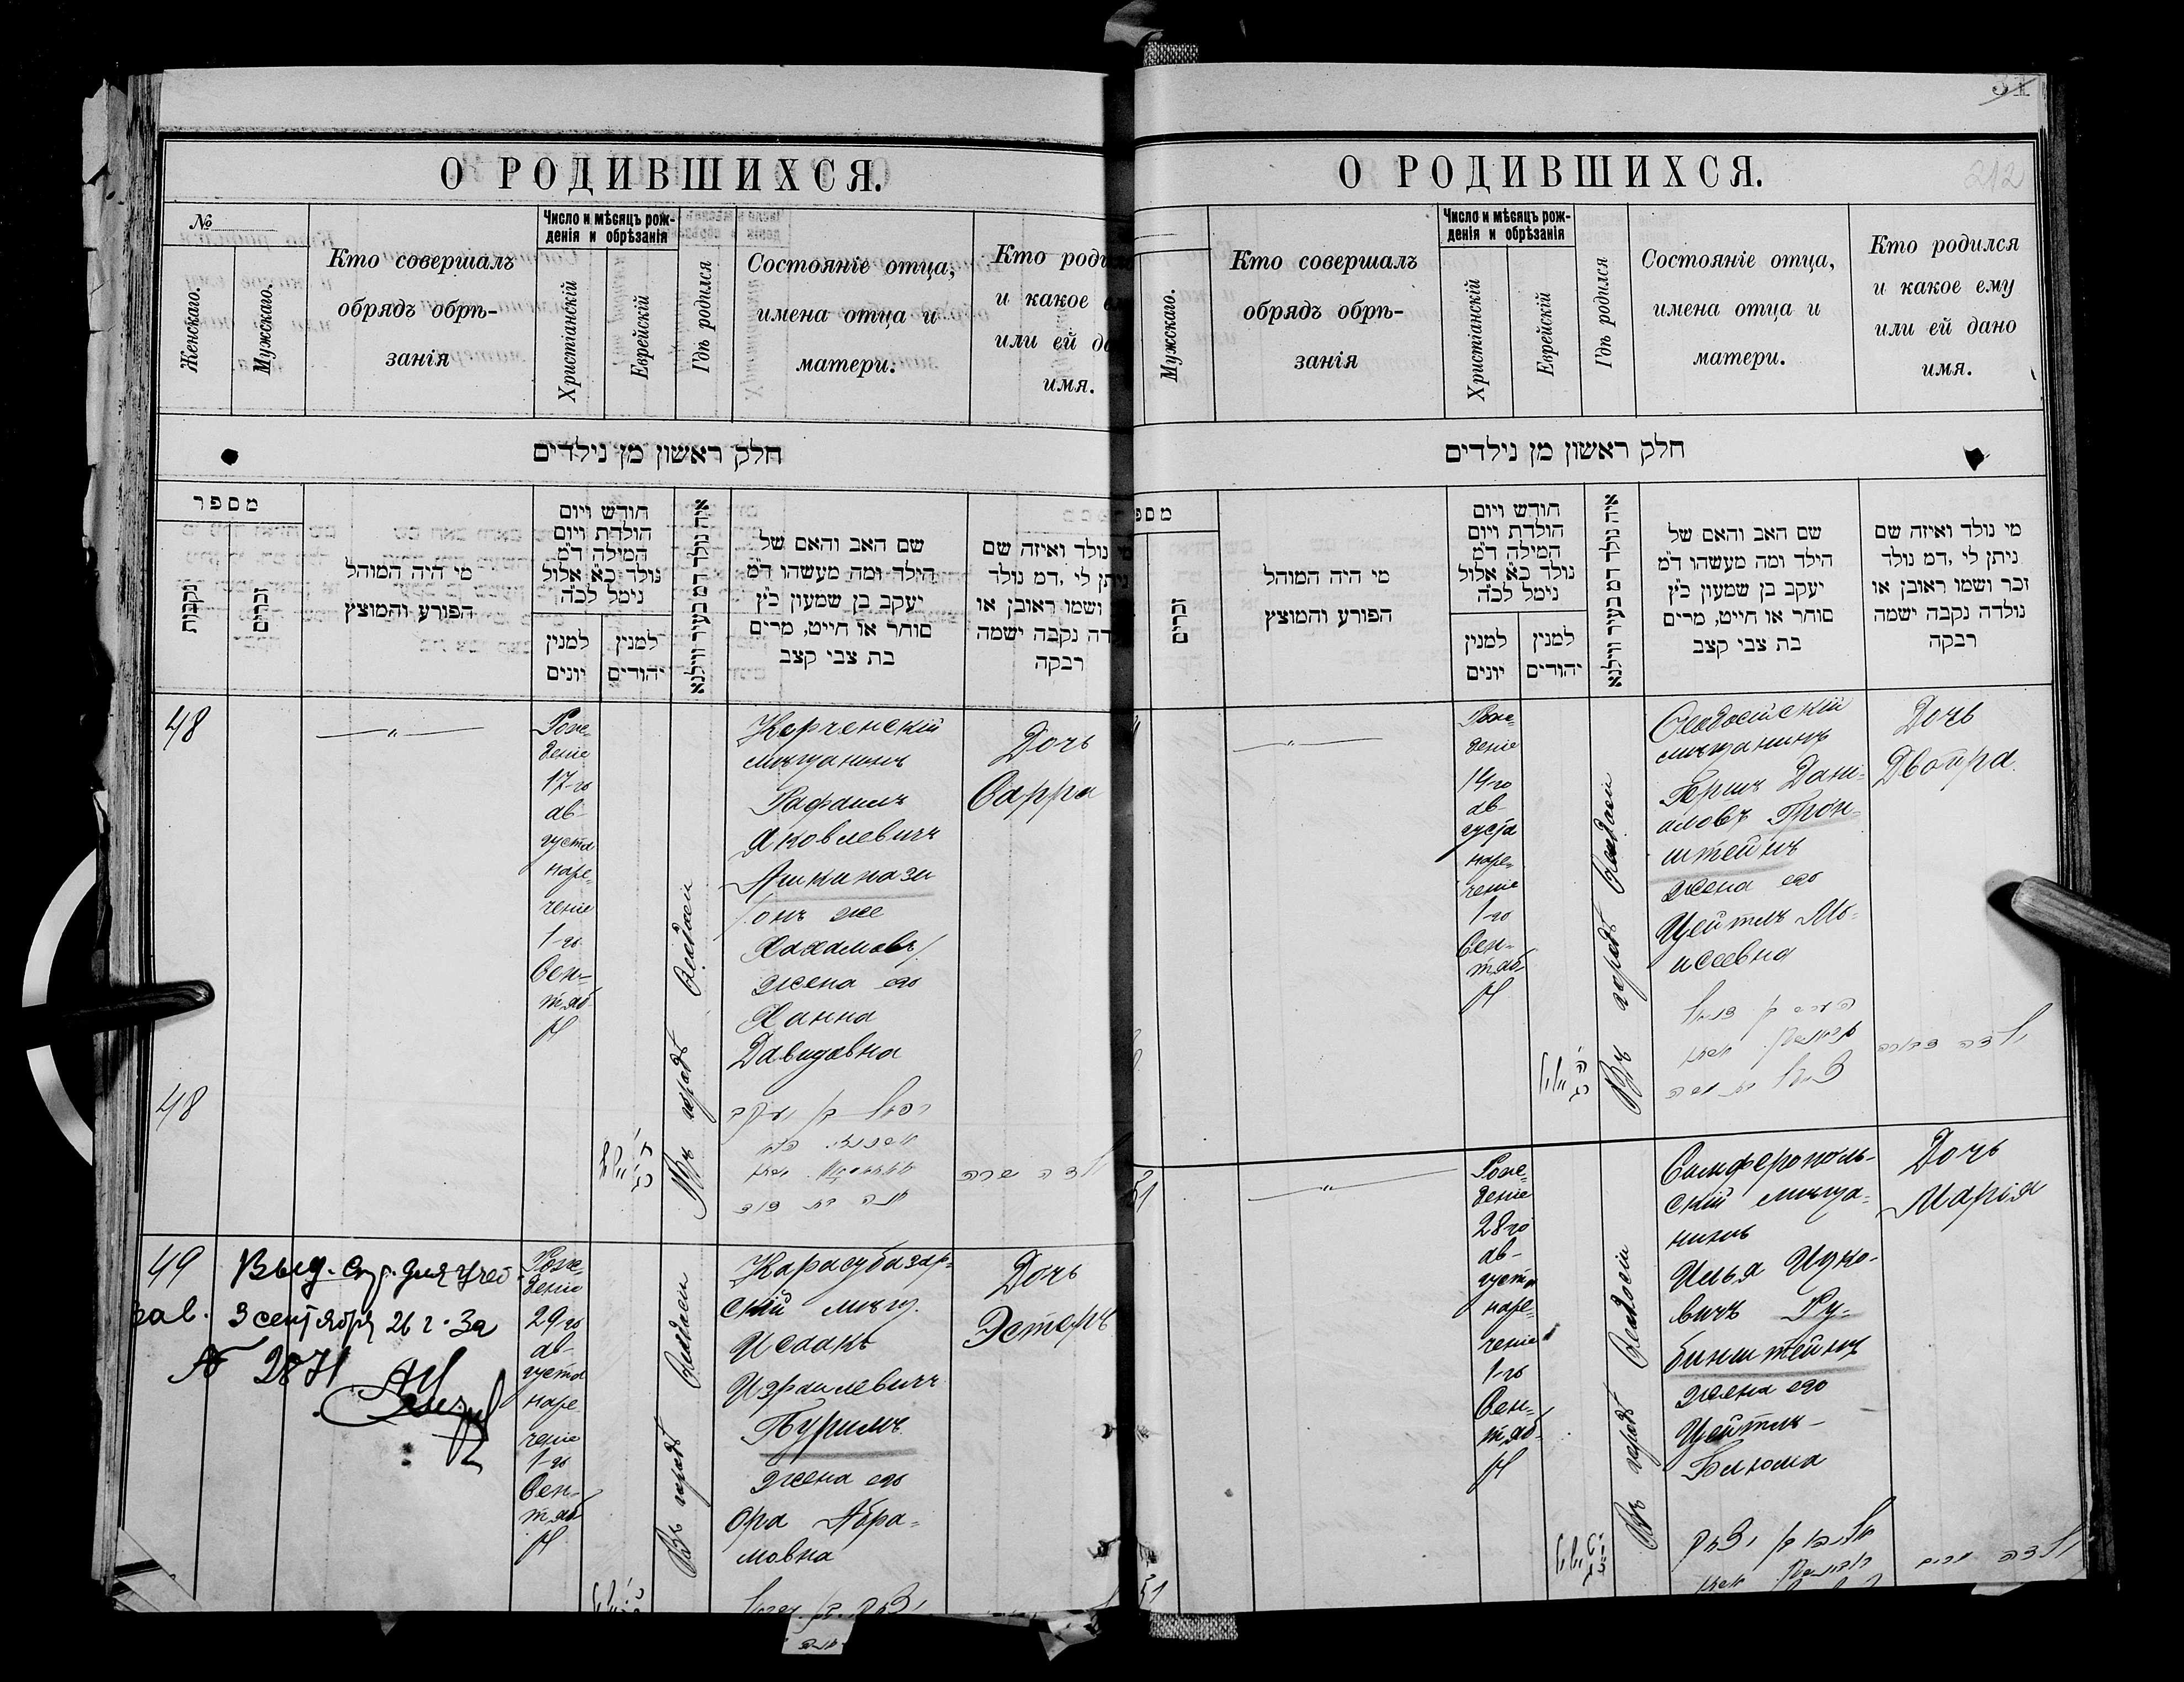 О РОДИВШИХСЯ.
№
Женскаго.
Мужскаго.
Кто совершалъ
обрядъ обрѣ-
занія
Число и мѣсяцъ рож-
денія и обрѣзанія
Христіанскій
Еврейскій
Гдѣ родился
Состояніе отца,
имена отца и
матери.
Кто роди
и какое е
или ей да
имя.
חלק ראשון מן נילדים
מספר
נקבות
זכרים
מי היה המוהל
הפורע והמוצץ
חודש ויום
הולדת ויום
המילה ד"מ
נולד כ"א אלול
נימל לכ"ה
למנין
יונים
למנין
יהודים
איה נולד דמ בעיר ווילנא
שם האב והאם של
הילד ומה מעשהו ד"מ
יעקב בן שמעון כ"ץ
סוחר או חייט, מרים
בת צבי קצב
מי נולד ואיזה שם
ניתן לי, דמ נולד
ושמו ראובן או
דה נקבה ישמה
רבקה
48
Рож-
деніе
17-го
ав-
густа
наре-
ченіе
1-го
Сен-
тяб
Въ городѣ Ѳеодосіи
Керченскій
мѣщанинъ
Рафаилъ
Яковлевичъ
Ашкинази
/онъ же
Хахамовъ/
жена его
Ханна
Давидовна
רפאל בן יעקב
Дочь
Сарра
ילדה שרה
48
49
Выд. спр. для учеб
зав. 3 сентября 26 г. За
№ 2871
Рож-
деніе
29-го
ав-
густа
наре-
ченіе
1-го
Сен-
тяб
Въ городѣ Ѳеодосіи
Карасубазар-
скій мѣщ.
Исаакъ
Израилевичъ
Пуримъ
жена его
Ора Абра-
мовна
Дочь
Эстеръ
31
212
О РОДИВШИХСЯ.
Мужскаго.
Кто совершалъ
обрядъ обрѣ-
занія
Число и мѣсяцъ рож-
денія и обрѣзанія
Христіанскій
Еврейскій
Гдѣ родился
Состояніе отца,
имена отца и
матери.
Кто родился
и какое ему
или ей дано
имя.
חלק ראשון מן נילדים
מספ
זכרים
מי היה המוהל
הפורע והמוצץ
חודש ויום
הולדת ויום
המילה ד"מ
נולד כ"א אלול
נימל לכ"ה
למנין
יונים
למנין
יהודים
איה נולד דמ בעיר ווילנא
שם האב והאם של
הילד ומה מעשהו ד"מ
יעקב בן שמעון כ"ץ
סוחר או חייט, מרים
בת צבי קצב
מי נולד ואיזה שם
ניתן לי, דמ נולד
זכר ושמו ראובן או
נולדה נקבה ישמה
רבקה
Рож-
деніе
14-го
ав-
густа
наре-
ченіе
1-го
Сен-
тяб
Въ городѣ Ѳеодосіи
Ѳеодосійскій
мѣщанинъ
Гершъ Дані-
иловъ Грон-
штейнъ
жена его
Цейтлъ Мо-
исеевна
Дочь
Двойра
ילדה דבורה
51
Рож-
деніе
28 го
ав-
густа
наре-
ченіе
1-го
Сен-
тяб
Въ городѣ Ѳеодосіи
Симферополь-
скій мѣща-
нинъ
Илья Ицко-
вичъ Ру-
бинштейнъ
жена его
Цейтлъ-
Блюма
Дочь
Марія
ילדה מרים
51